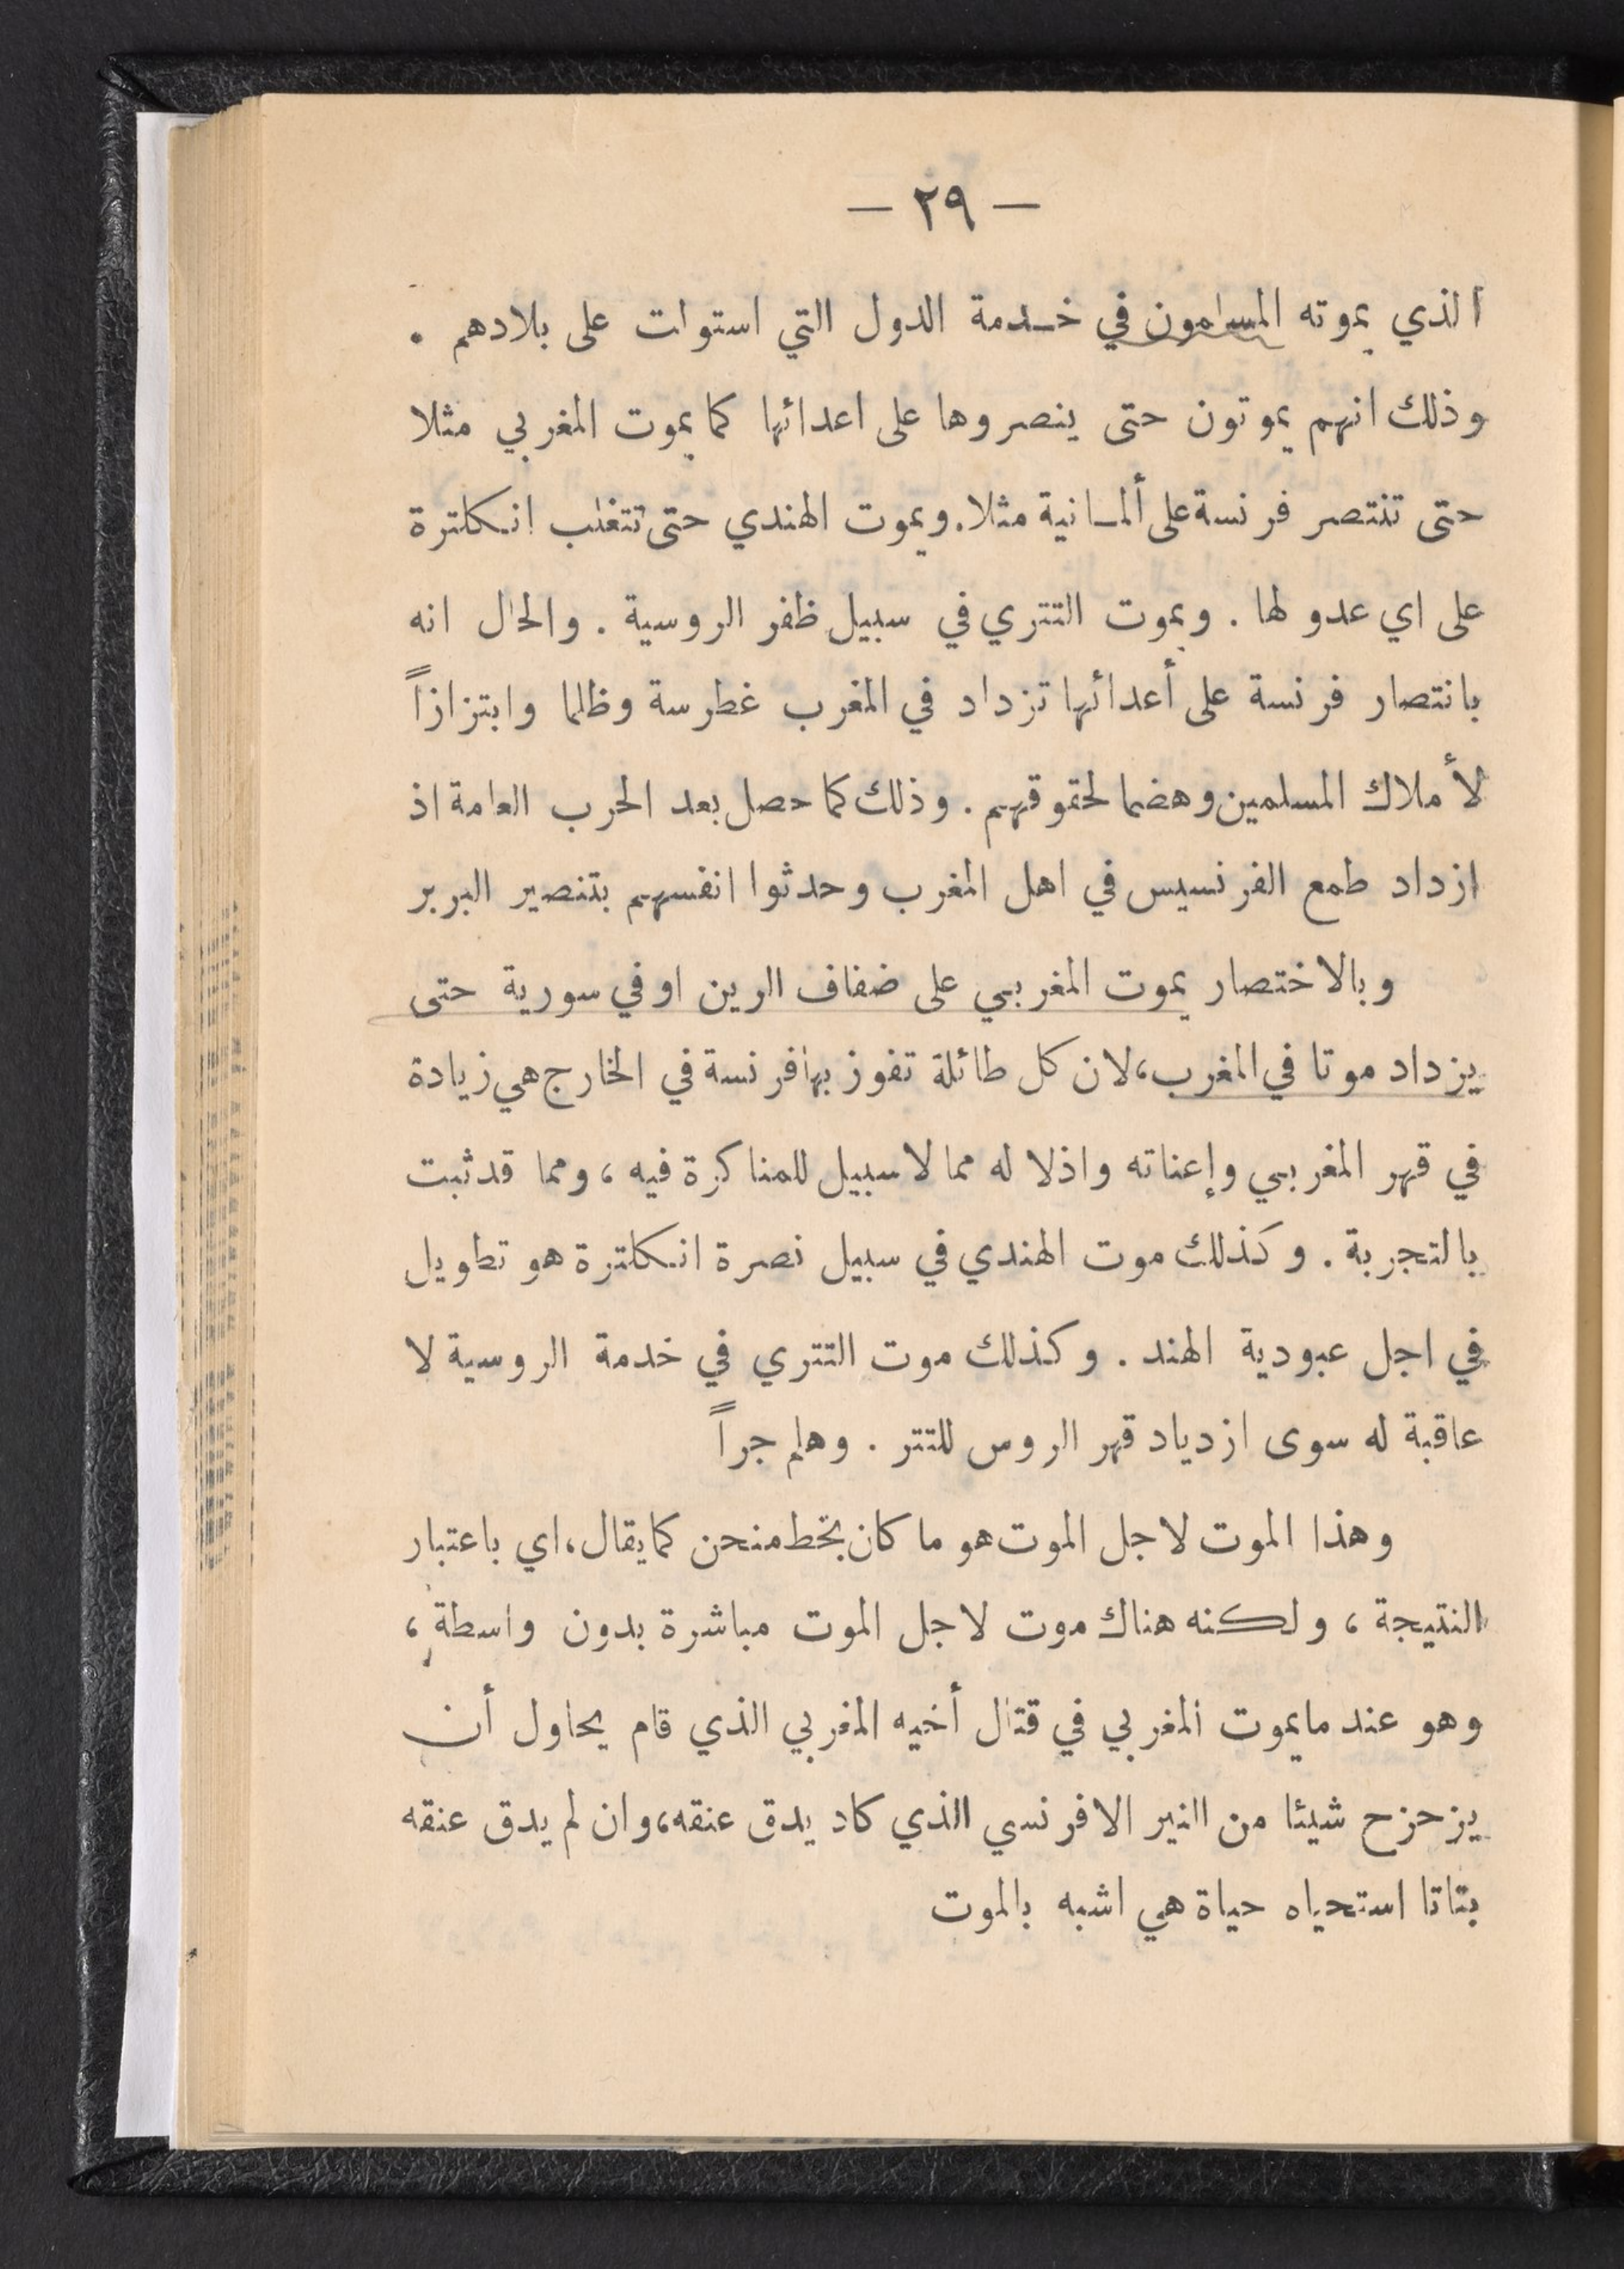 — ٢٩ —
الذي يموته المسلمون في خدمة الدول التي استولت على بلادهم .
وذلك انهم يموتون حتى ينصروها على اعدائها كما يموت المغربي مثلا
حتى تنتصر فرنسة على ألمانية مثلا. ويموت الهندي حتى تتغلب انكلترة
على اي عدو لها . ويموت التتري في سبيل ظفر الروسية . والحال انه
بانتصار فرنسة على أعدائها تزداد في المغرب غطرسة وظلما وابتزازاً
لأملاك المسلمين وهضما لحقوقهم . وذلك كما حصل بعد الحرب العامة اذ
ازداد طمع الفرنسيس في اهل المغرب وحدثوا انفسهم بتنصير البربر
وبالاختصار يموت المغربي على ضفاف الرين او في سورية حتى
يزداد موتا في المغرب، لان كل طائلة تفوز بها فرنسة في الخارج هي زيادة
في قهر المغربي وإعناته واذلاله مما لا سبيل للمناكرة فيه ، ومما قد ثبت
بالتجربة . وكذلك موت الهندي في سبيل نصرة انكلترة هو تطويل
في اجل عبودية الهند . وكذلك موت التتري في خدمة الروسية لا
عاقبة له سوى ازدياد قهر الروس للتتر . وهلم جراً
وهذا الموت لاجل الموت هو ما كان بخط منحن كما يقال، اي باعتبار
النتيجة ، ولكنه هناك موت لاجل الموت مباشرة بدون واسطة ،
وهو عند ما يموت المغربي في قتال أخيه المغربي الذي قام يحاول أن
يزحزح شيئا من النير الافرنسي الذي كاد يدق عنقه، وان لم يدق عنقه
بتاتا استحياه حياة هي اشبه بالموت